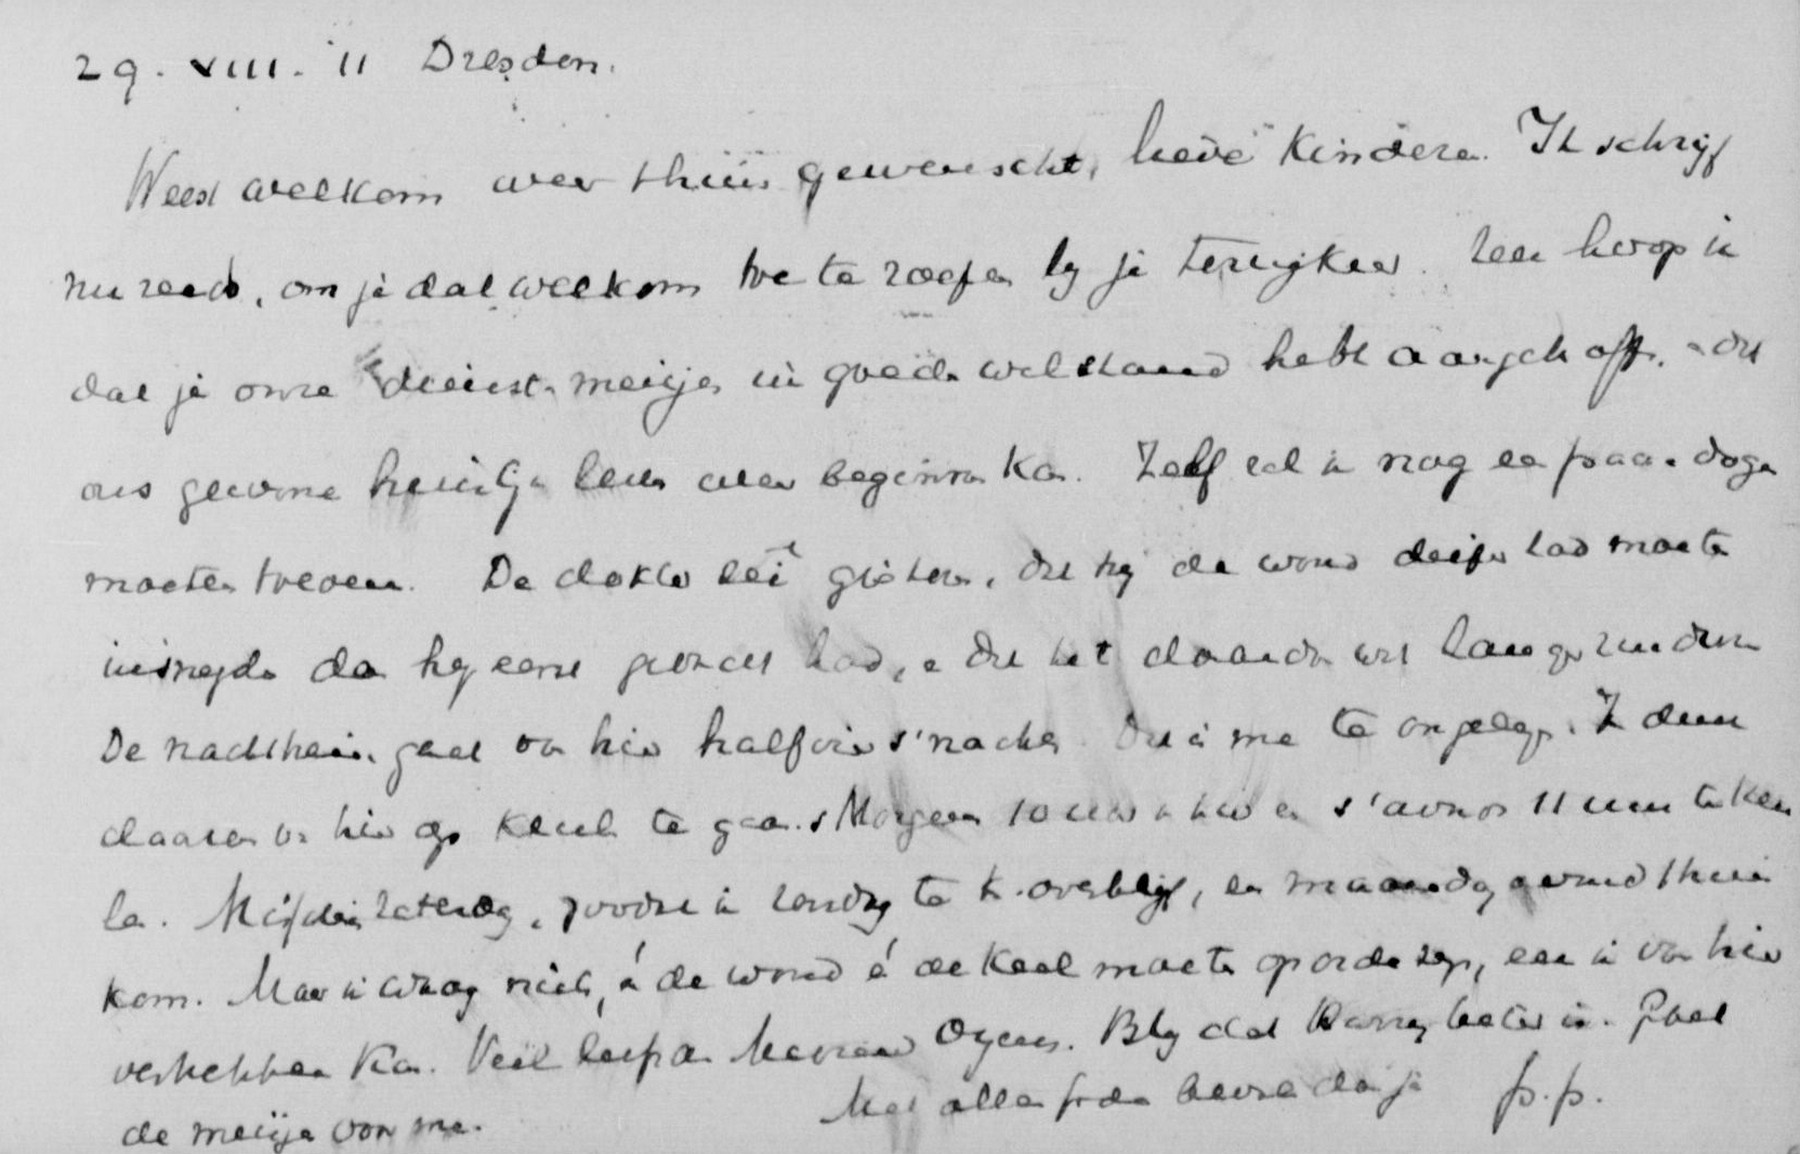 29. VIII. '11 Dresden.
Weest welkom weer thuis gewenscht, lieve kinderen. Ik schrijf
nu reeds, om je dat welkom toe te roepen bij je terugkeer. Zeer hoop ik
dat je onze dienstmeisjes in goede welstand hebt aangetroffen, en dat
ons gewone huislijk leven weer beginnen kan. Zelf zal ik nog een paar dagen
moeten toeven. De dokter zei gisteren, dat hij de wond dieper had moeten
insnijden dan hij eerst gedacht had, en dat het daardoor wat langer zou duren
De nachttrein gaat van hier half vier 's nachts. Dat is me te ongelegen. Ik denk
daarom van hier op Keulen te gaan. 's Morgens 10 uur van hier en 's avonds 11 uur te Keulen
Misschien zaterdag, zoodat ik zondag te K. overblijf, en maandag avond thuis
kom. Maar ik waag niets, én de wond én de keel moeten op orde zijn, eer ik van hier
vertrekken kan. Veel liefs aan Mevrouw Oyens. Blij dat Harry beter is. Groet
de meisjes van me. Met alle goede beden je p.p.